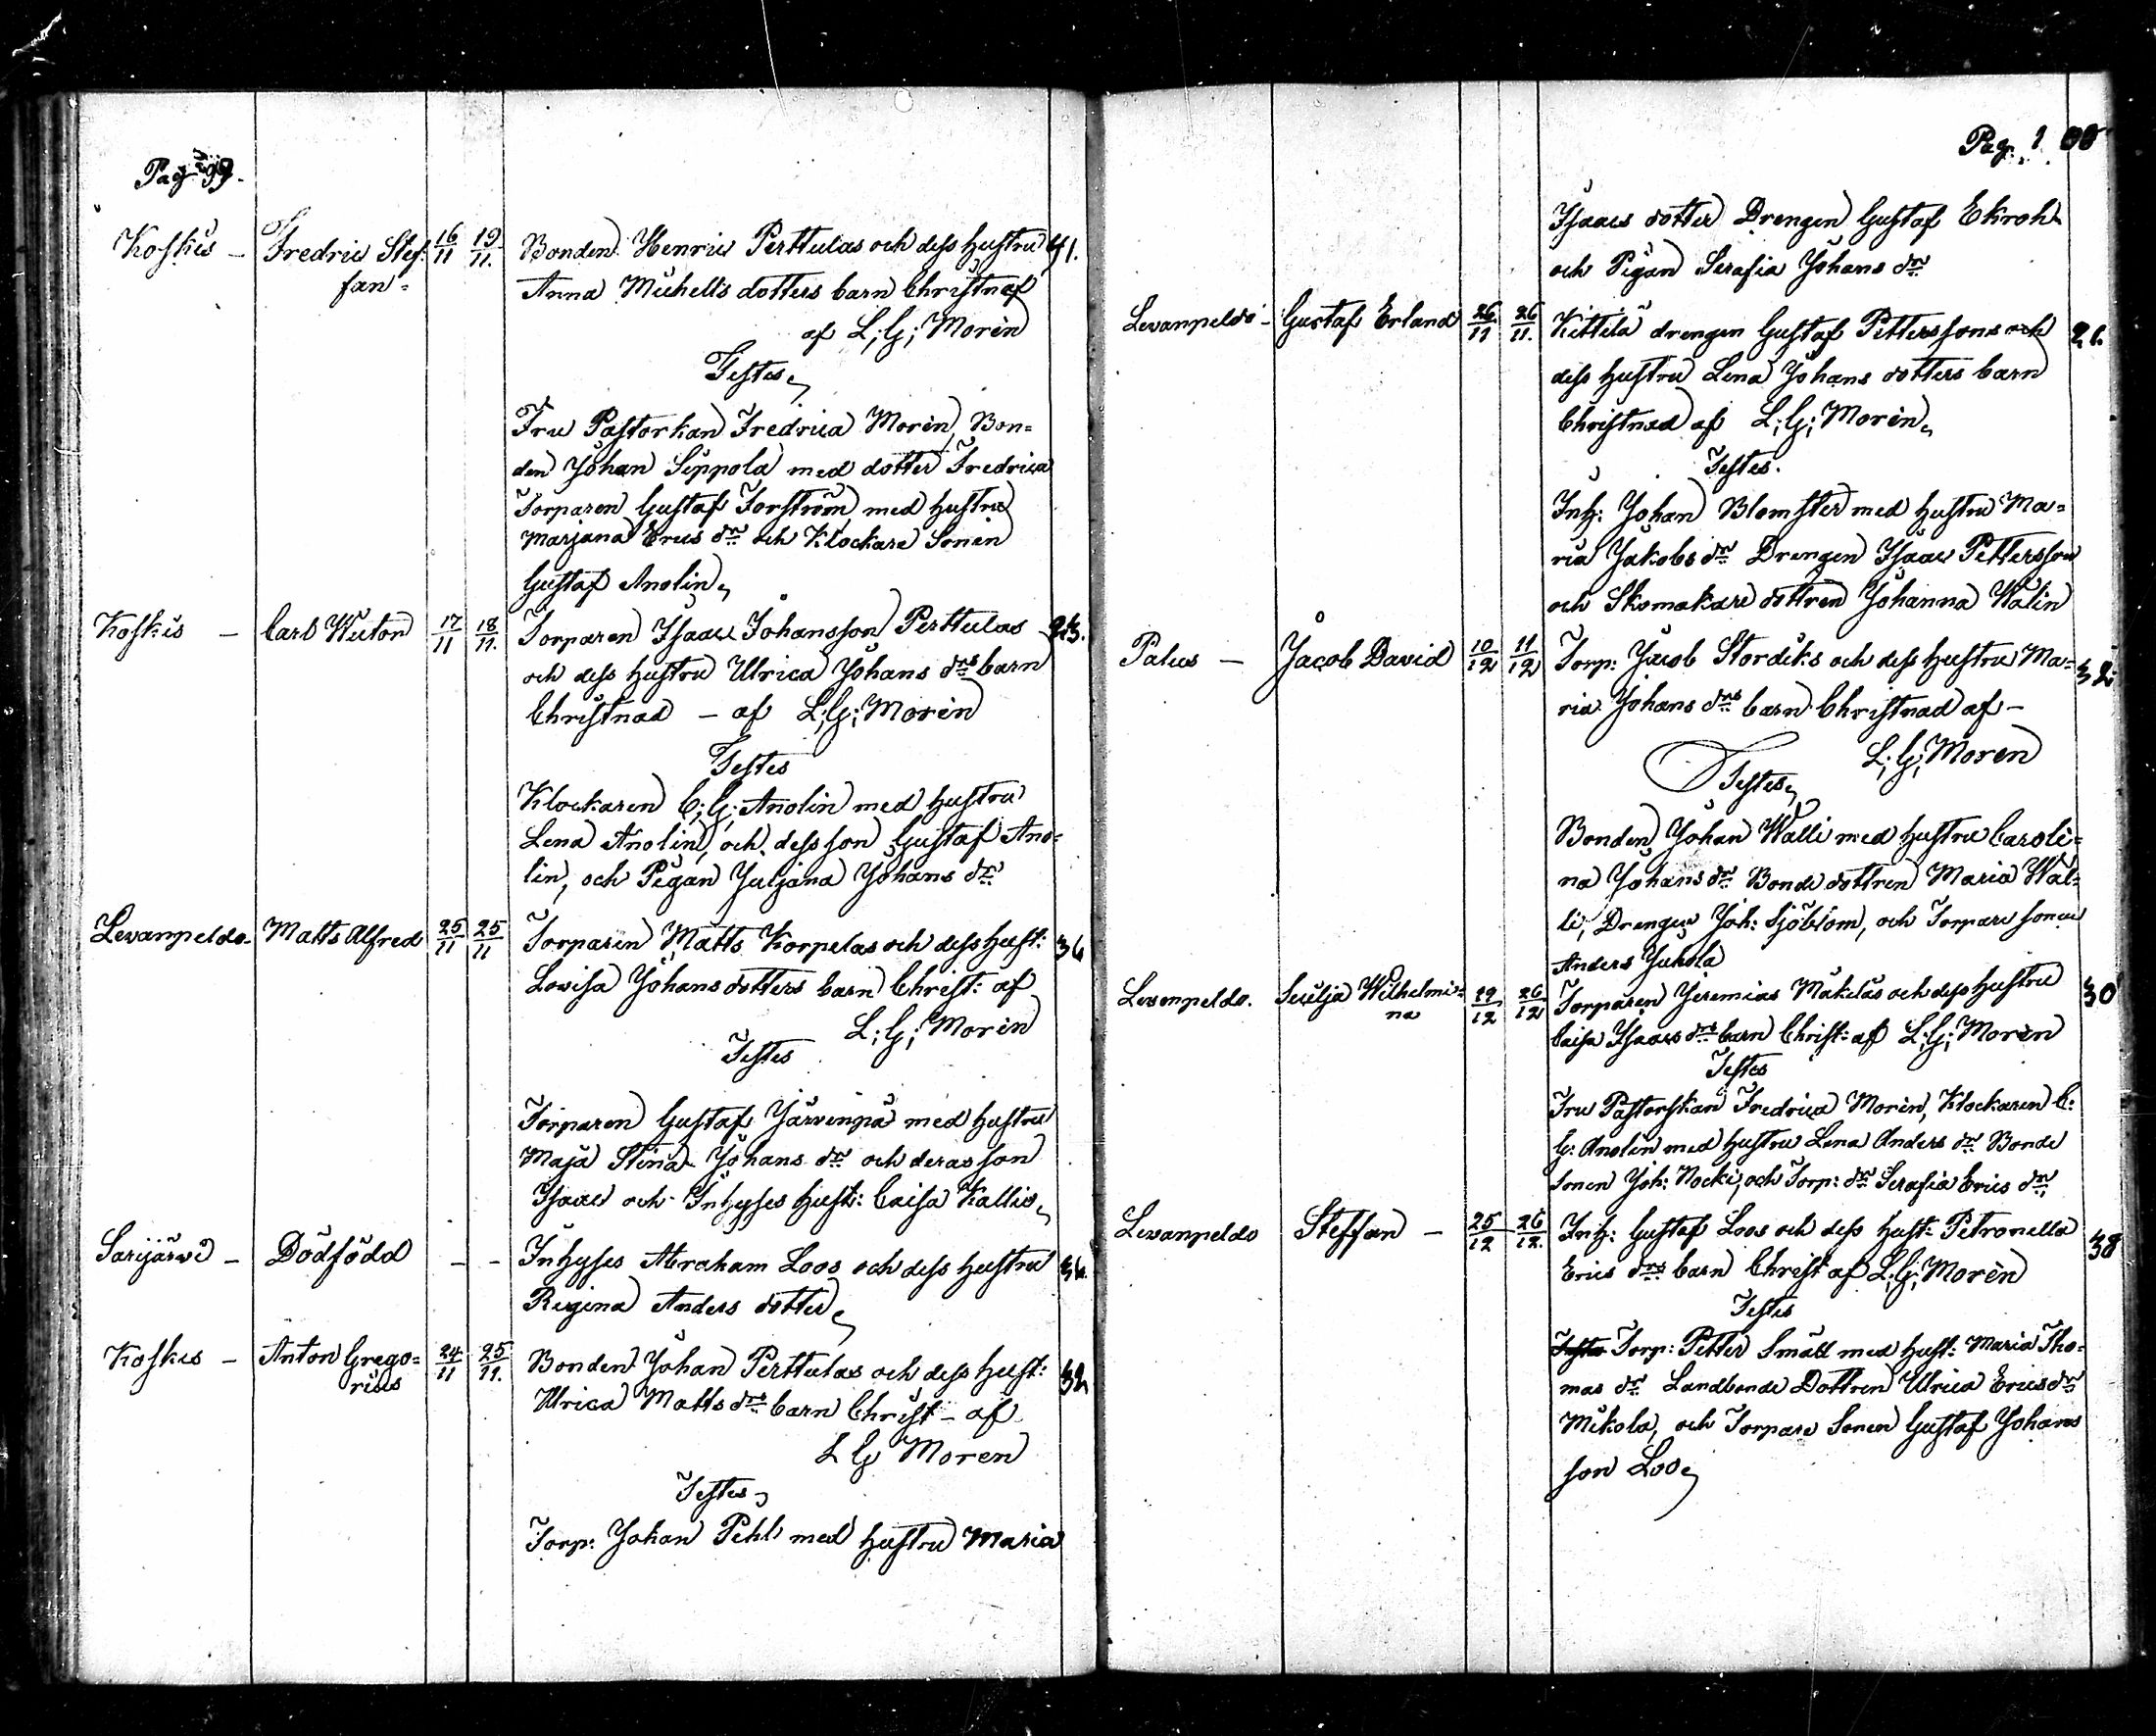 Pag 99.
Koskis - Fredric Stef: 16/11 19/11. Bonden Henric Perttulas och dess hustru 41.
fan - Anna Michells dotters barn Christnaf
af L; G; Morén
Testes,
Fru Pastorkan Fredrica Morén, Bon=
den Johan Seppola med dotter Fredrica
Torparen Gustaf Forström med hustru
Marjana Erics dr och Klockare Sonen
Gustaf Anolin,
Koskis - Carl Wicton 17/11 18/11. Torparen Isaac Johansson Perttulas 23.
och dess hustru Ulrica Johans drs barn
Christnad - af L; G; Morén
Testes
Klockaren C; G; Anolin med hustru
Lena Anolin, och dess son Gustaf Ano=
lin, och Pigan Juljana Johans dr
Levanpeldo- Matts Alfred 25/11 25/11 Torparen Matts Korpelas och dess hust: 36
Lovisa Johansdotters barn Christ: af
L; G; Morén
Testes
Torparen Gustaf Järvenpä med hustru
Maja Stina Johans dr och deras son
Isaac och Inhyses hust: Caisa Kallio,
Sarijärvi - Dödfödd - - Inhyses Abraham Loos och dess hustru 36.
Regina Anders dotter,
Koskis - Anton Grego= 24/11 25/11. Bonden Johan Perttulas och dess hust: 32
rius Ulrica Matts drs barn Christ - af
L G Moren
Testes,
Torp: Johan Pehl med hustru Maria
Pag. 100
Isaacs dotter Drengen Gustaf Ekroh
och Pigan Serafia Johans dr
Levanpeldo - Gustaf Erland 26/11 26/11. Kittilä drengen Gustaf Petterssons och 21.
dess hustru Lena Johans dotters barn
Christnad af L; G; Morén,
Testes.
Inh: Johan Blomster med hustru Ma=
ria Jakobs dr Drengen Isaac Pettersson
och Skomakare dottren Johanna Walin
Palus - Jacob David 10/12 11/12 Torp: Jacob Stordiks och dess hustru Ma= 32
ria Johans drs barn Christnad af -
L; G; Moren
Testes,
Bonden Johan Walli med hustru Caroli=
na Johans dr Bonde dottren Maria Wal=
li, Drengen Joh: Sjöblom, och Torpare sonen
Anders Juhola
Levanpeldo. Seulja Wilhelmi= 22/12 26/12 Torparen Jeremias Mäkiläs och dess hustru 30
na Caisa Isaacs drs barn Christ: af L; G; Morén
Testes
Fru Pastorskan Fredrica Morén, Klockaren C:
G: Anolin med hustru Lena Anders dr Bonde
Sonen Joh: Nocki, och Torp: dr Serafia Erics dr
Levanpeldo Steffan - 25/12 26/12. Inh: Gustaf Loos och dess hust: Petronella 38
Erics drs barn Christ af L; G; Morén
Testes
Torp: Petter Småll med hust: Maria Tho=
mas dr Landbonde Dottren Ulrica Erics dr
Mikola, och Torpare Sonen Gustaf Johans
son Loo,